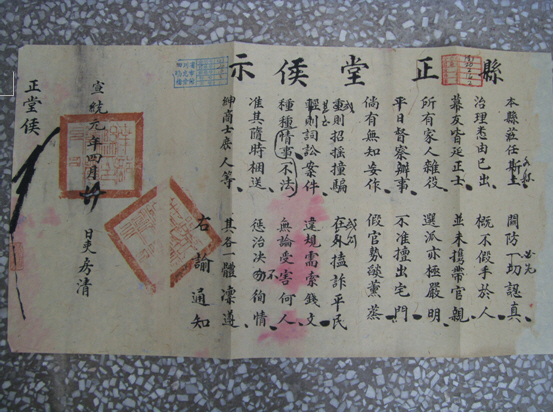 縣正堂侯示
本縣莅任斯土 關防一切認真
治理悉由己出 概不假手於人
幕友皆延正士 並未攜帶官親
所有家人雜役 選派亦極嚴明
平日督察辦事 不准擅出宅門
倘有無知妄作 假官勢燄薰蒸
重則招搖撞騙 在外磕詐平民
輕則詞訟案件 違規需索錢文
種種情事不法 無論受害何人
准其隨時梱送 懲治決勿徇情
紳商士庶人等 其各一體凜遵
右諭通知
宣統元年四月 日吏房清
正堂侯